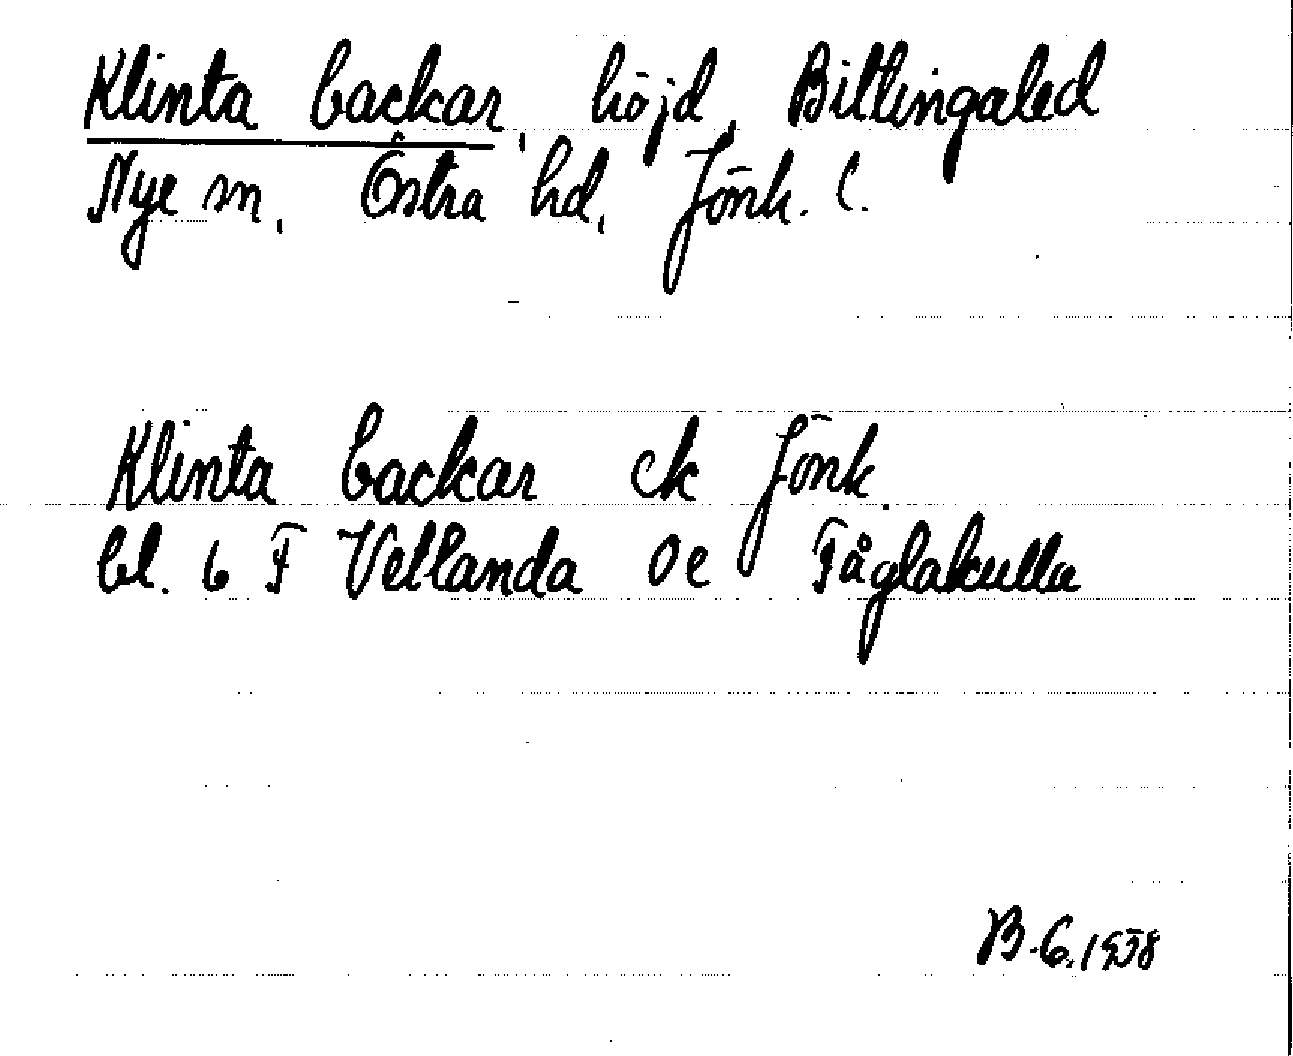 Klinta backar, höjd, Billingaled
Nye sn, Östra hd, Jönk. l.
Klinta backar ek Jönk.
bl. 6 F Vetlanda Oe Fåglakulla
B.G. 1958